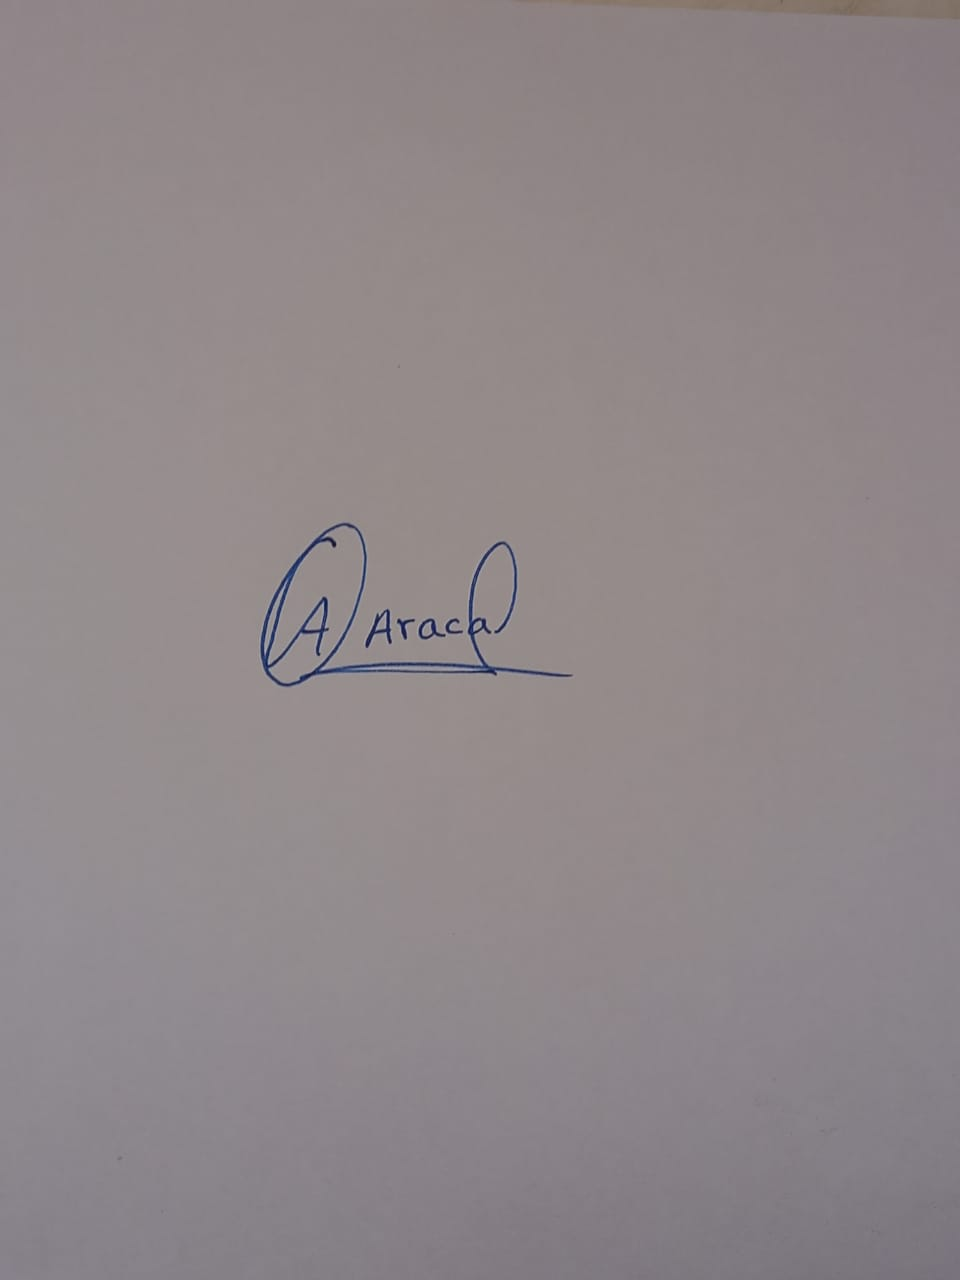 A Aracal